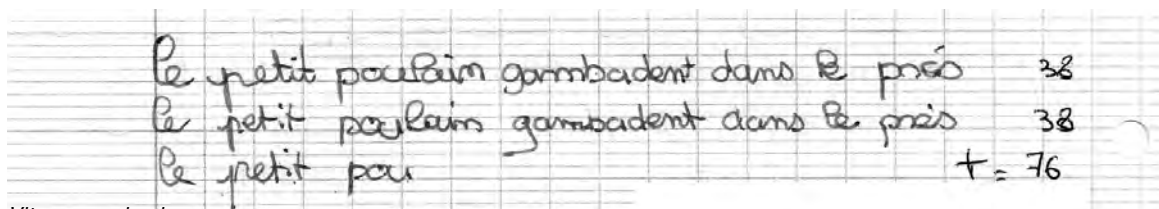 le petit poulain gambadent dans le prés 38
le petit poulain gambadent dans le près 38
le petit pou t = 76